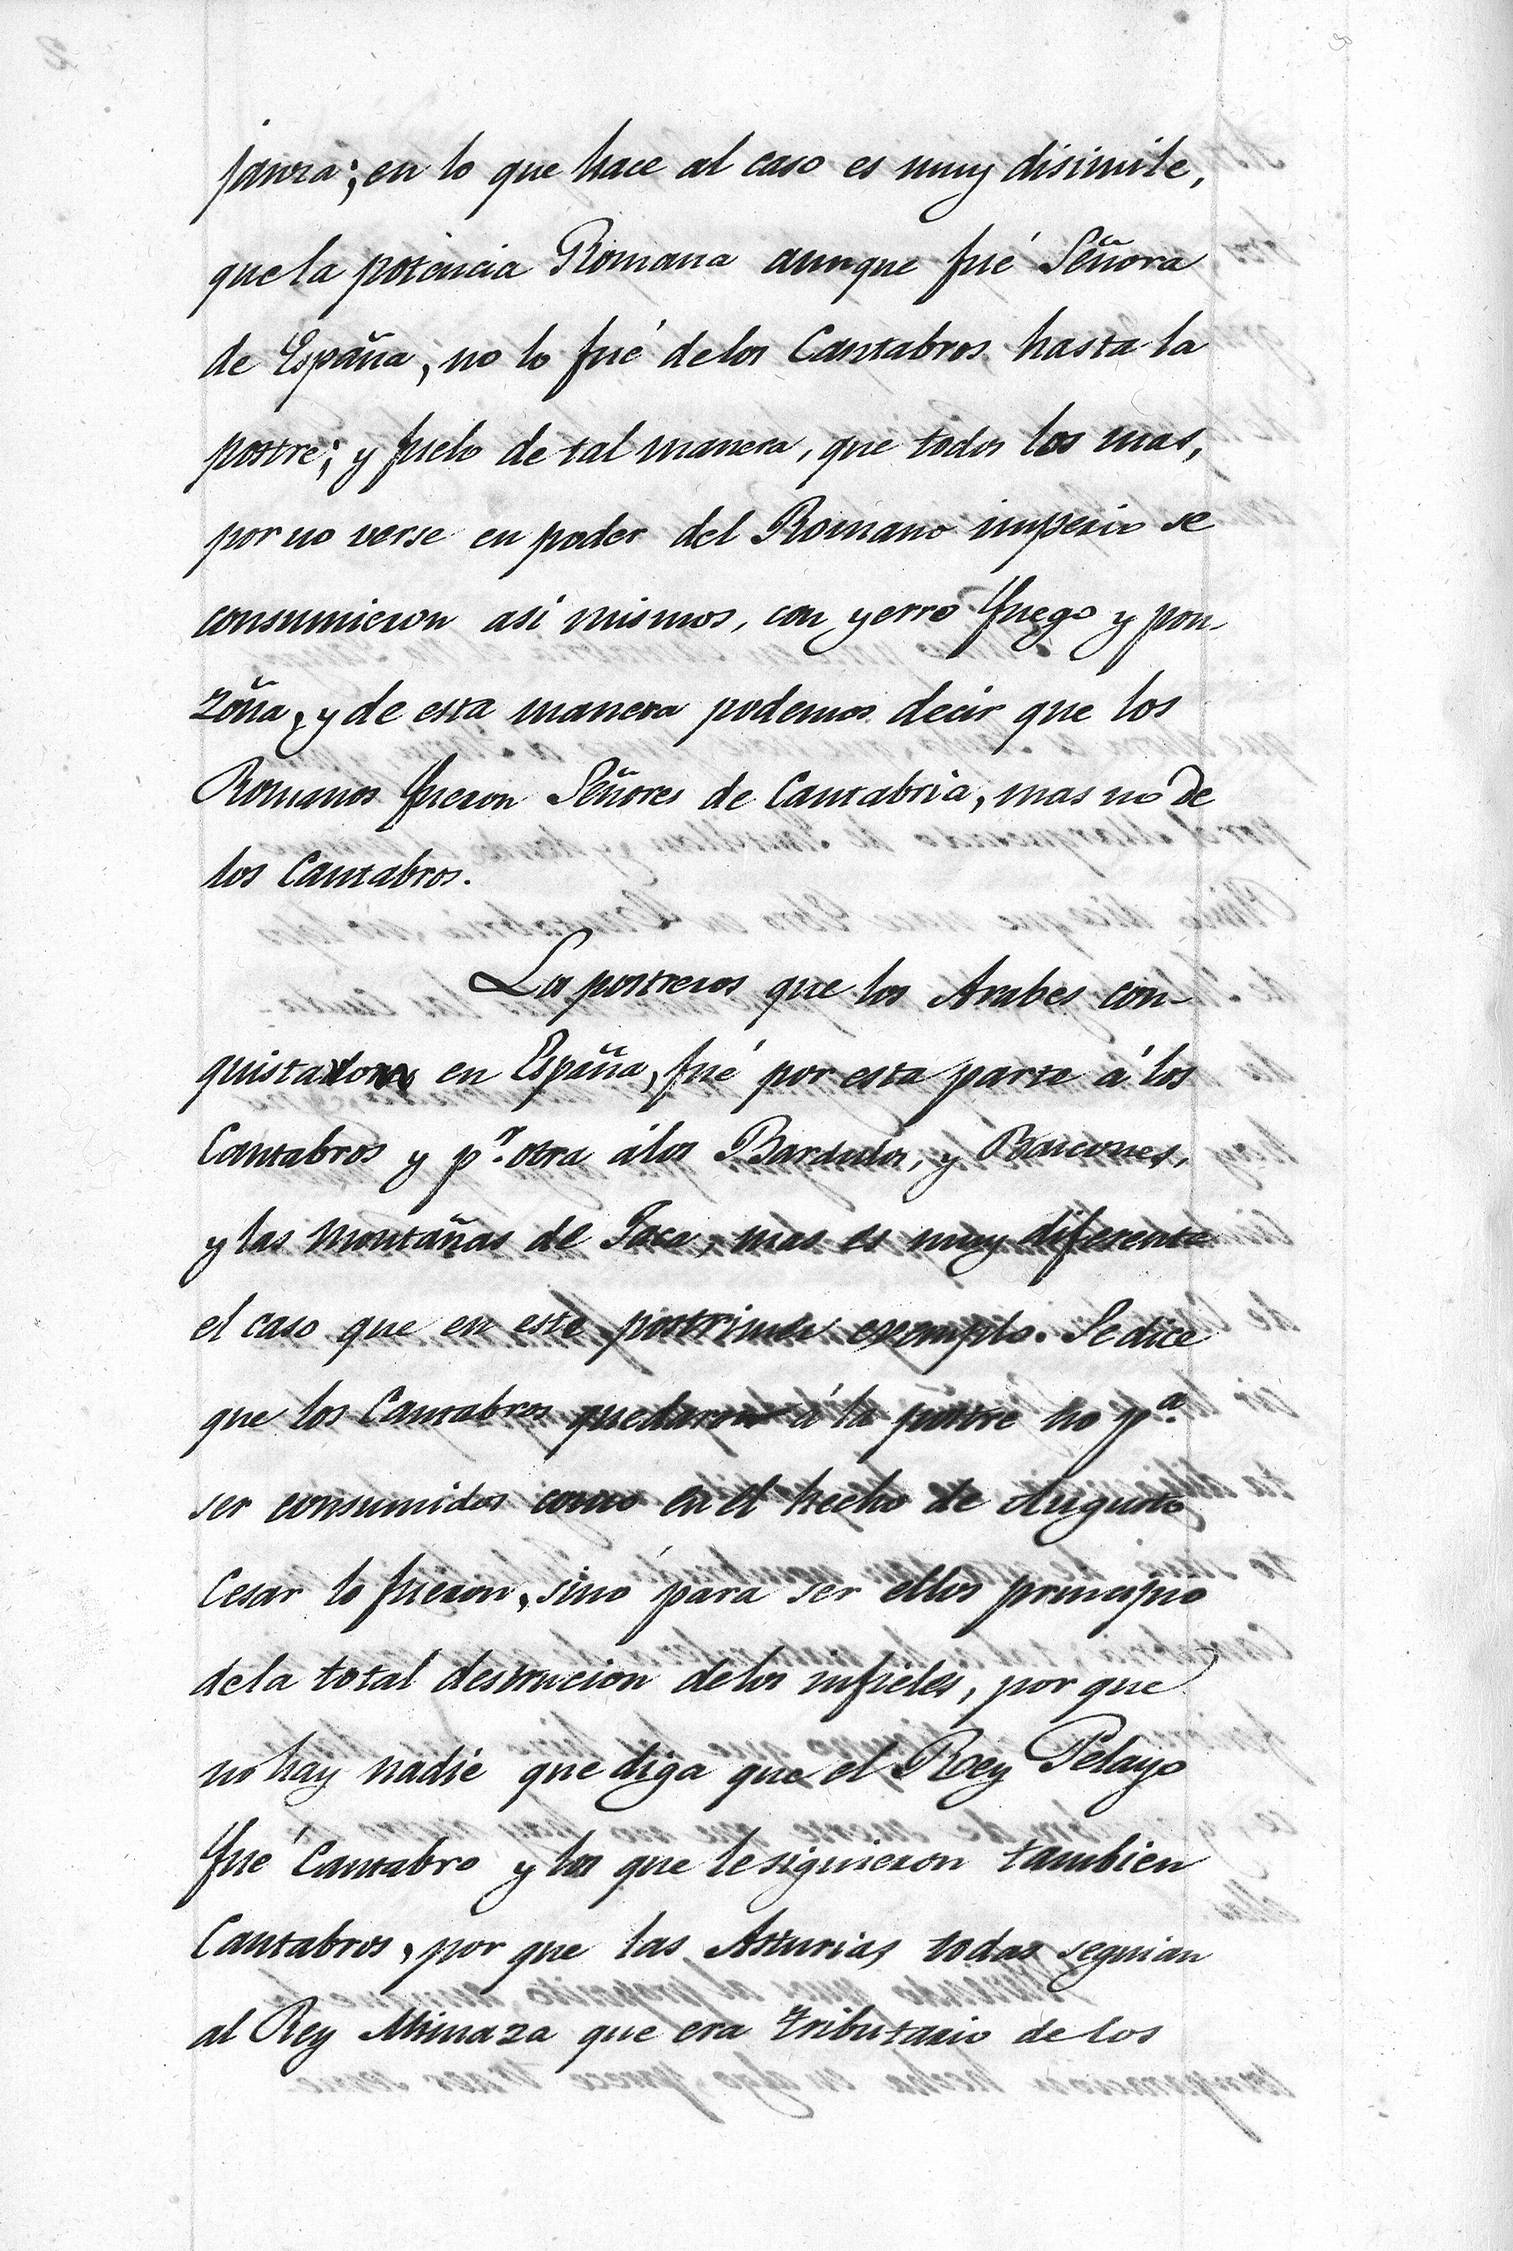 janza; en lo que hace al caso es muy disimile,
que la potencia Romana aunque fué Señora
de España, no lo fué delos Cantabros hasta la
postre; y fuelo de tal manera, que todos los mas,
por no verse en poder del Romano imperio se
consumieron asi mismos, con yerro fuego y pon-
zoña, y de esta manera podemos decir que los
Romanos fueron Señores de Cantabria, mas no de
los Cantabros.
Los postreros que los Arabes con-
quistaron en España, fué por esta parte á los
Cantabros y pr. otra álos Bardulos, y Bascones,
y las Montañas de Jaca, mas es muy diferente
el caso que en este postrimer exemplo. Se dice
que los Cantabros quedaron á la postre no pa.
ser consumidos como en el hecho de Augusto
Cesar lo fueron, sinó para ser ellos principio
dela total destrucion delos infieles, por que
no hay nadie que diga que el Rey Pelayo
fué Cantabro y los que lesiguieron tambien
Cantabros, por que las Asturias todas seguian
al Rey que era tributario de los